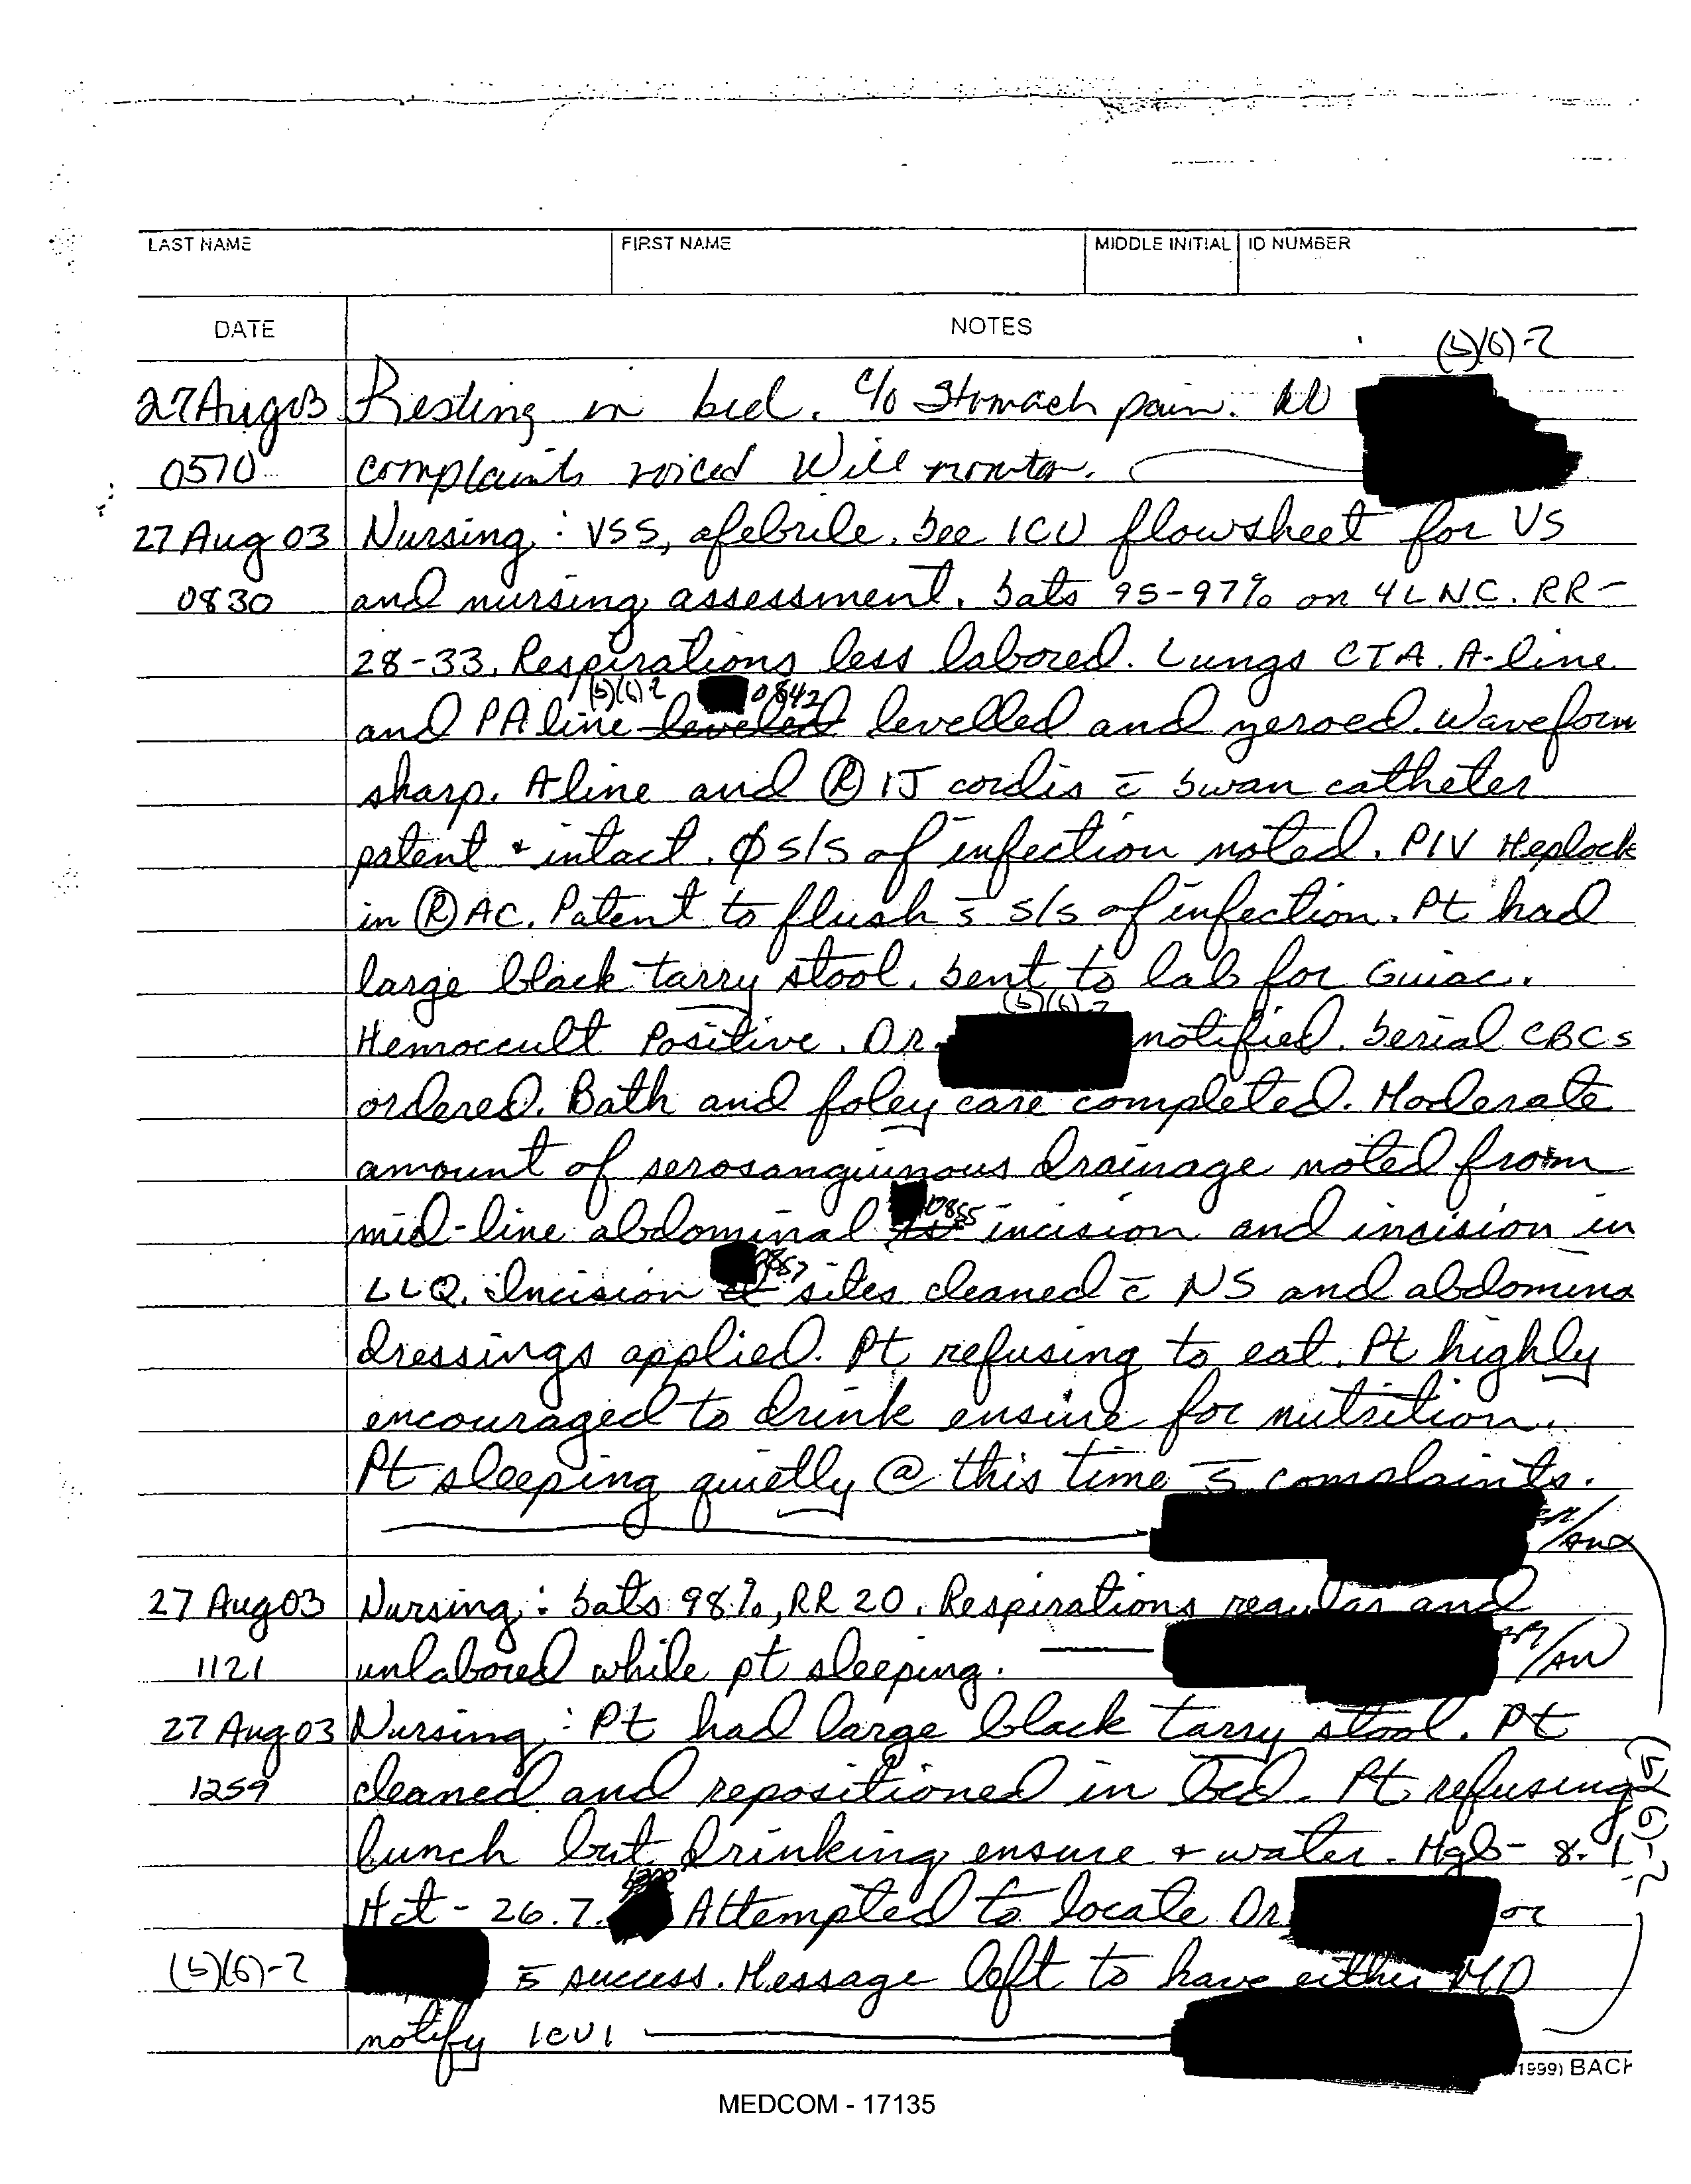 LAST NAME FIRST NAME MIDDLE INITIAL ID NUMBER
DATE NOTES
(b)(6)-2
27Aug03 Resting in bed. c/o Stomach pain. No
0510 complaints voiced Will monitor.
27 Aug 03 Nursing: VSS, afebrile. See ICU flowsheet for VS
0830 and nursing assessment. Sats 95-97% on 4L NC. RR-
28-33. Respirations less labored. Lungs CTA. A-line
(b)(6)-2 0842
and PA line leveled levelled and zeroed. Waveform
sharp. Aline and Ⓡ IJ cordis c̄ Swan catheter
patent + intact. Ø s/s of infection noted. PIV Heplock
in Ⓡ AC. Patent to flush s̄ s/s of infection. Pt had
large black tarry stool. Sent to lab for Guiac.
(b)(6)-2
Hemoccult Positive. Dr. notified. Serial CBCs
ordered. Bath and foley care completed. Moderate
amount of serosanguinous drainage noted from
0855
mid-line abdominal incision and incision in
0857
LLQ. Incision sites cleaned c̄ NS and abdomina
dressings applied. Pt refusing to eat. Pt highly
encouraged to drink ensure for nutrition.
Pt sleeping quietly @ this time s̄ complaints.
27 Aug 03 Nursing: Sats 98%, RR 20. Respirations regular and
1121 unlabored while pt sleeping. /AN
27 Aug 03 Nursing: Pt had large black tarry stool. Pt
1259 cleaned and repositioned in bed. Pt refusing
lunch but drinking ensure + water. Hgb- 8.1
(b)(6)-2
Hct - 26.7. Attempted to locate Dr or
(b)(6)-2 s̄ success. Message left to have either MD
notify ICU1
1999) BACK
MEDCOM - 17135